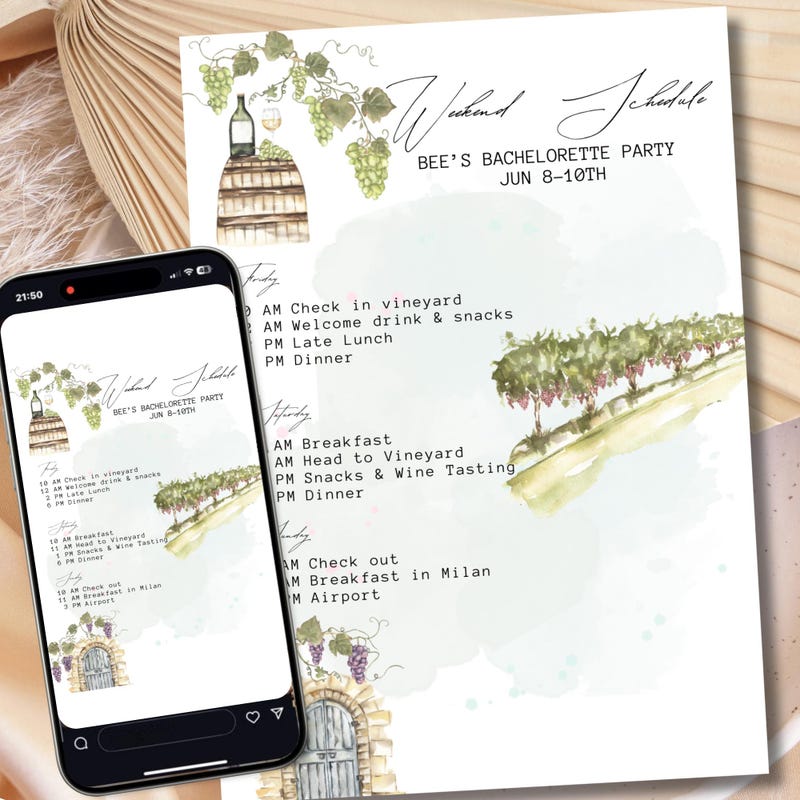 Weekend Schedule
BEE'S BACHELORETTE PARTY
JUN 8-10TH
Friday
AM Check in vineyard
AM Welcome drink & snacks
PM Late Lunch
PM Dinner
Saturday
AM Breakfast
AM Head to Vineyard
PM Snacks & Wine Tasting
PM Dinner
Sunday
AM Check out
AM Breakfast in Milan
PM Airport
21:50
Weekend Schedule
BEE'S BACHELORETTE PARTY
JUN 8-10TH
Friday
10 AM Check in vineyard
12 AM Welcome drink & snacks
2 PM Late Lunch
6 PM Dinner
Saturday
10 AM Breakfast
11 AM Head to Vineyard
1 PM Snacks & Wine Tasting
6 PM Dinner
Sunday
10 AM Check out
11 AM Breakfast in Milan
3 PM Airport